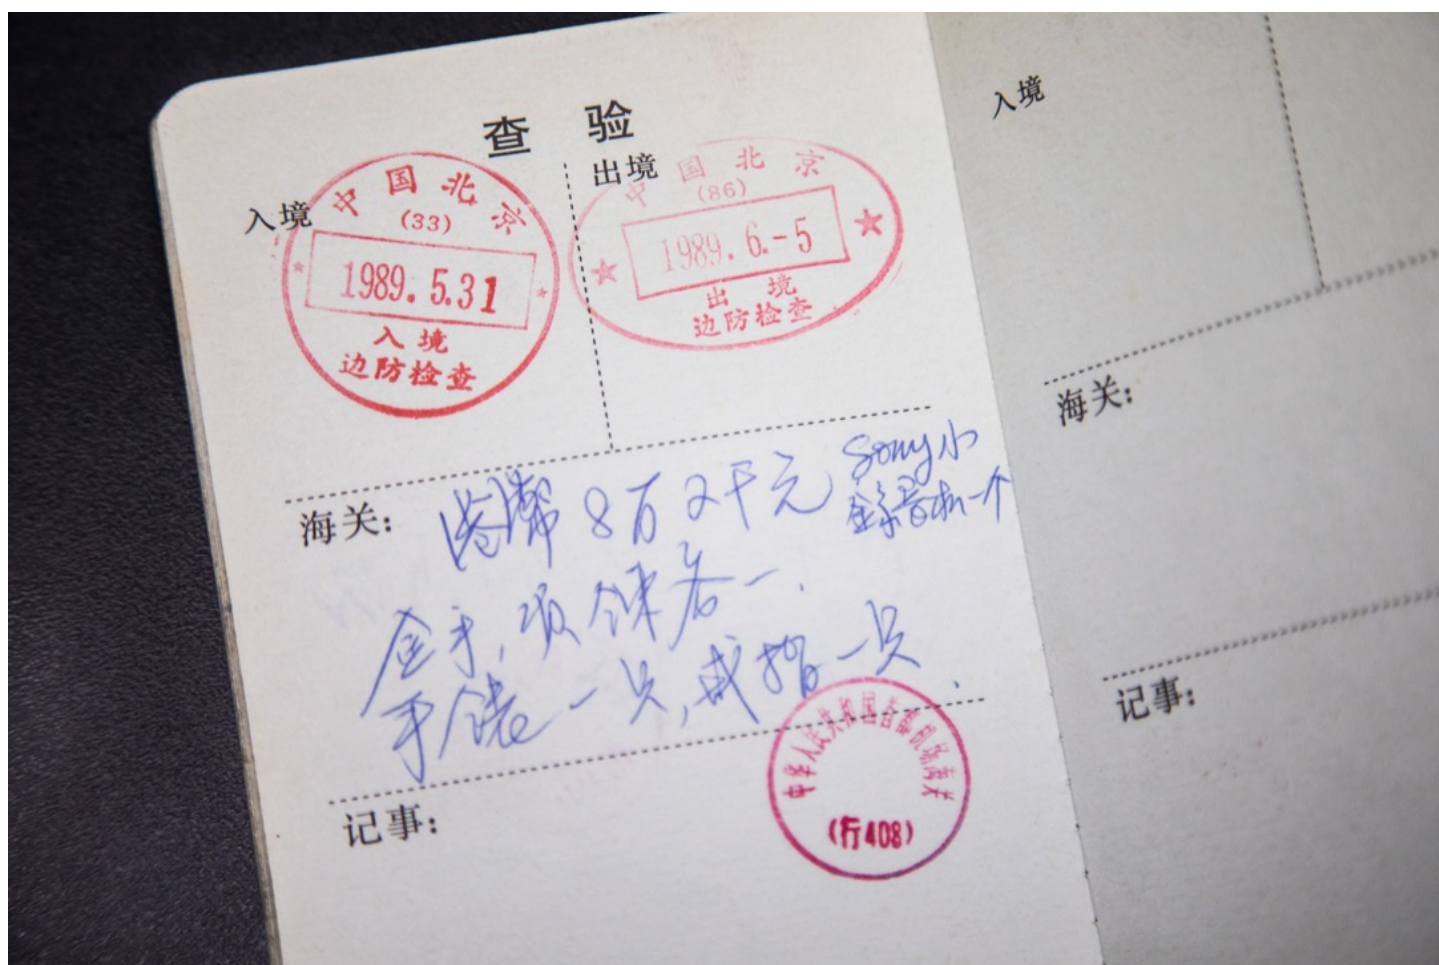 查 验
入境
出境
中国北京
(33)
1989.5.31
入境
边防检查
中国北京
(86)
1989.6.-5
出境
边防检查
海关：
港幣 8万2千元
Sony小
錄音机一个
金手,项鍊各一.
手镯一只,戒指一只.
中华人民共和国首都机场海关
(行408)
记事：
入境
海关：
记事：